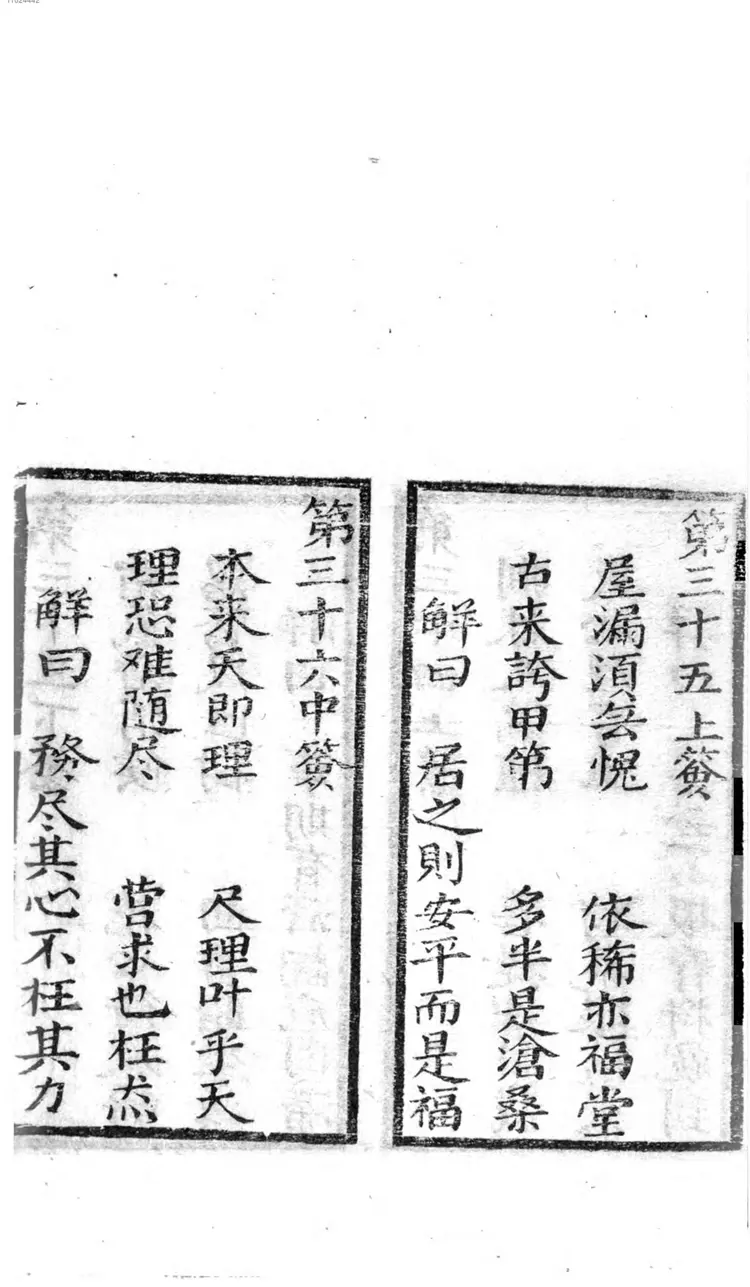 11024442
第三十五上簽
屋漏須無愧 依稀亦福堂
古来誇甲第 多半是滄桑
解曰 居之則安平而是福
第三十六中簽
本来天即理 尺理叶乎天
理恐难随尽 营求也枉然
解曰 務尽其心不枉其力